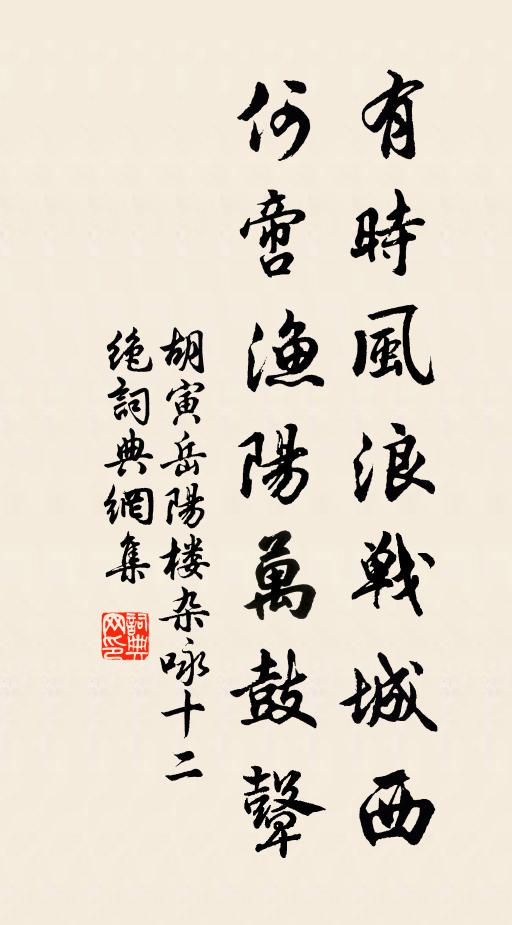 有時風浪戰城西
何啻漁陽萬鼓鼙
胡寅岳陽楼杂咏十二
绝詞典網集
詞典网印